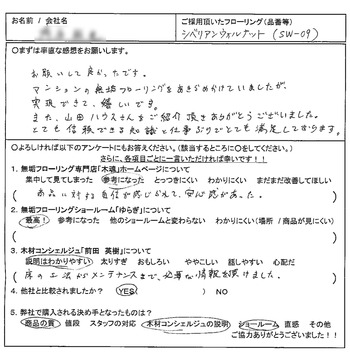 お名前 / 会社名
ご採用頂いたフローリング(品番等)
シベリアンウォルナット (SW-09)
○まずは率直な感想をお願いします。
お願いして良かったです。
マンションの無垢フローリングをあきらめかけていましたが、
実現できて、嬉しいです。
また、山田ハウスさんをご紹介頂きありがとうございました。
とても信頼できる知識と仕事ぶりでとても満足しております。
○よろしければ以下のアンケートにもお答えください。(該当するところに○をしてください)
さらに、各項目ごとに一言いただければ幸いです!!
1. 無垢フローリング専門店「木魂」ホームページについて
集中して見てしまった 参考になった とっつきにくい わかりにくい まだまだ改善してほしい
( 商品に対する自信が感じられて、安心感があった。 )
2. 無垢フローリングショールーム「ゆらぎ」について
最高! 参考になった 他のショールームと変わらない わかりにくい(場所 / 商品が見にくい)
3. 木材コンシェルジュ「前田 英樹」について
説明はわかりやすい 太りすぎ おもしろい ややこしい 話しやすい 心配だ
( 床の工法からメンテナンスまで、必要な情報を頂けました。 )
4. 他社と比較されましたか? YES ) NO
5. 弊社で購入される決め手となったものは?
商品の質 値段 スタッフの対応 木材コンシェルジュの説明 ショールーム 直感 その他
ご協力ありがとうございました!